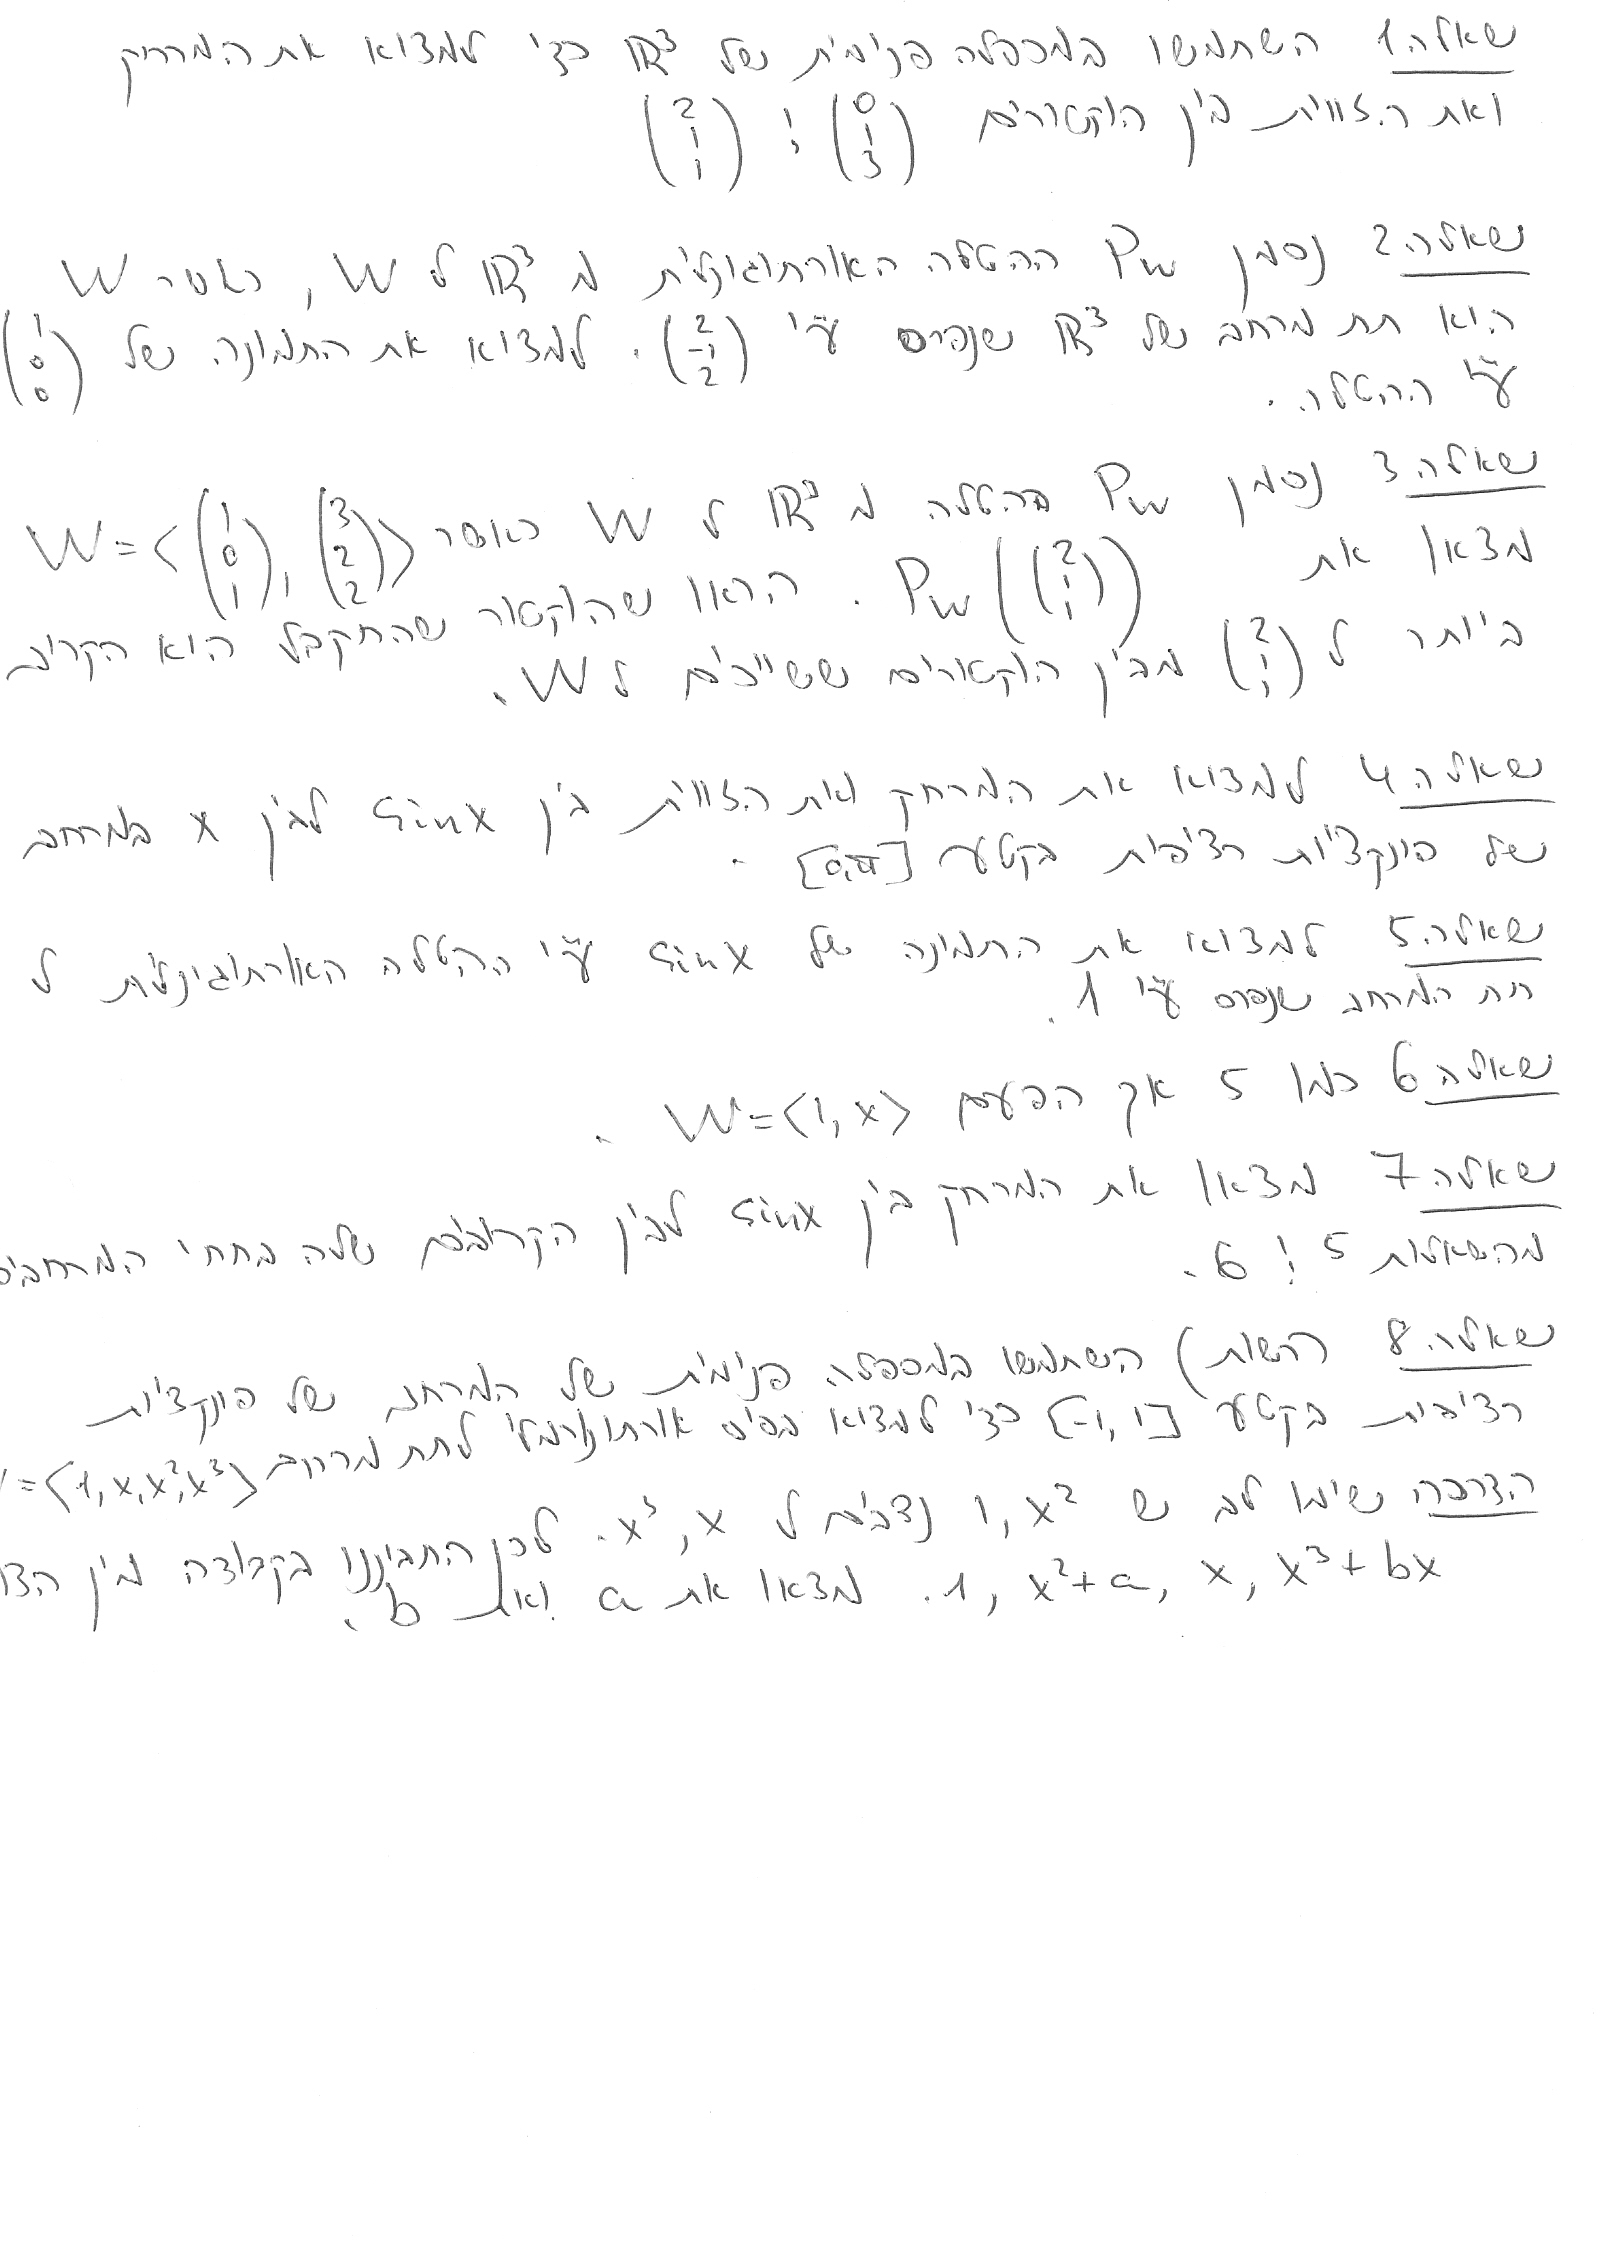 שאלה 1 השתמשו במכפלה פנימית של ℝ³ כדי למצוא את המרחק
ואת הזווית בין הוקטורים (0 1 3) ו (2 1 1)
שאלה 2 נסמן P_W ההטלה האורתוגונלית מ ℝ³ ל W, כאשר W
הוא תת מרחב של ℝ³ שנפרס ע״י (2 -1 2). למצוא את התמונה של (1 0 0)
ע״י ההטלה.
שאלה 3 נסמן P_W ההטלה מ ℝ³ ל W כאשר W=<(1 0 1), (3 2 2)>
מצאו את P_W((2 1 1)). הראו שהוקטור שהתקבל הוא הקרוב
ביותר ל (2 1 1) מבין הוקטורים ששייכים ל W.
שאלה 4 למצוא את המרחק ואת הזווית בין sinx לבין x במרחב
של פונקציות רציפות בקטע [0,π].
שאלה 5 למצוא את התמונה של sinx ע״י ההטלה האורתוגונלית ל
תת המרחב שנפרס ע״י 1.
שאלה 6 כמו 5 אך הפעם W=<1,x>.
שאלה 7 מצאו את המרחק בין sinx לבין הקרובים שלה בתתי המרחבים
מהשאלות 5 ו 6.
שאלה 8 (רשות) השתמשו במכפלה פנימית של המרחב של פונקציות
רציפות בקטע [-1,1] כדי למצוא בסיס אורתונורמלי לתת מרחב =<1,x,x²,x³>
הדרכה שימו לב ש 1,x² ניצבים ל x³,x. לכן התבוננו בקבוצה מין הצו
1, x²+a, x, x³+bx. מצאו את a ואת b.